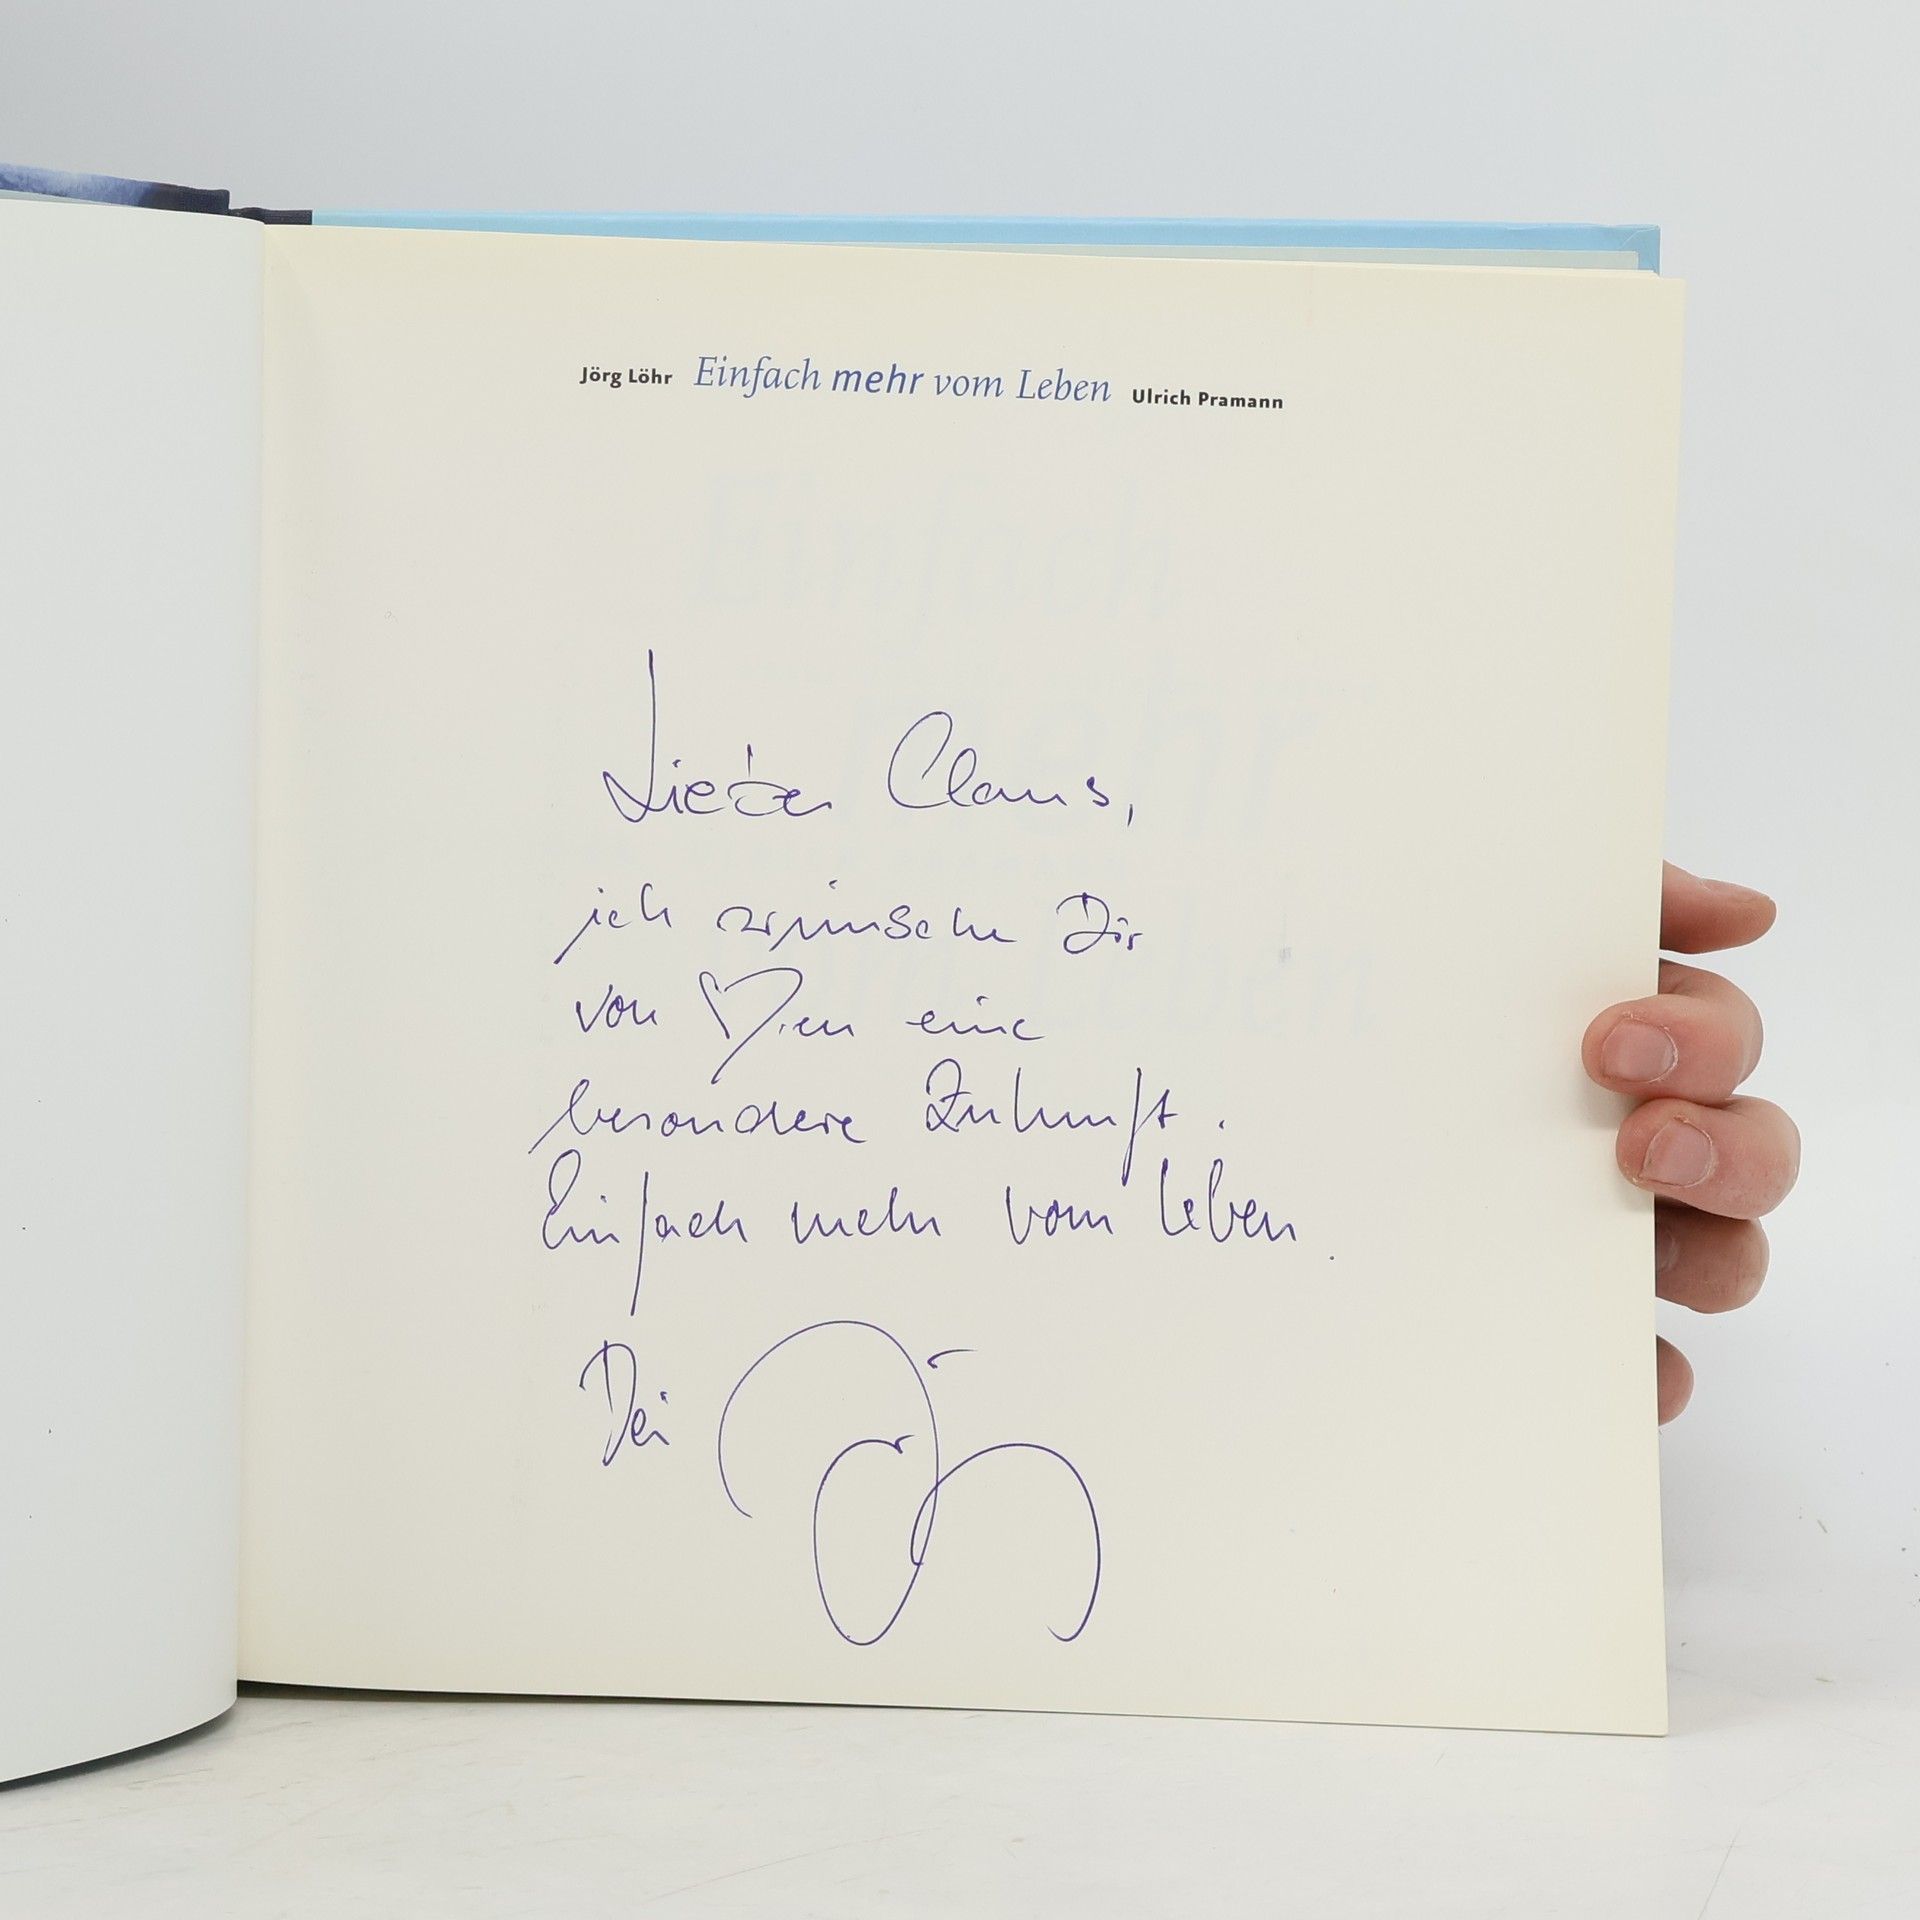 Jörg Löhr Einfach mehr vom Leben Ulrich Pramann
Lieber Claus,
ich wünsche Dir
von ♡en eine
besondere Zukunft.
Einfach mehr vom Leben.
Dei